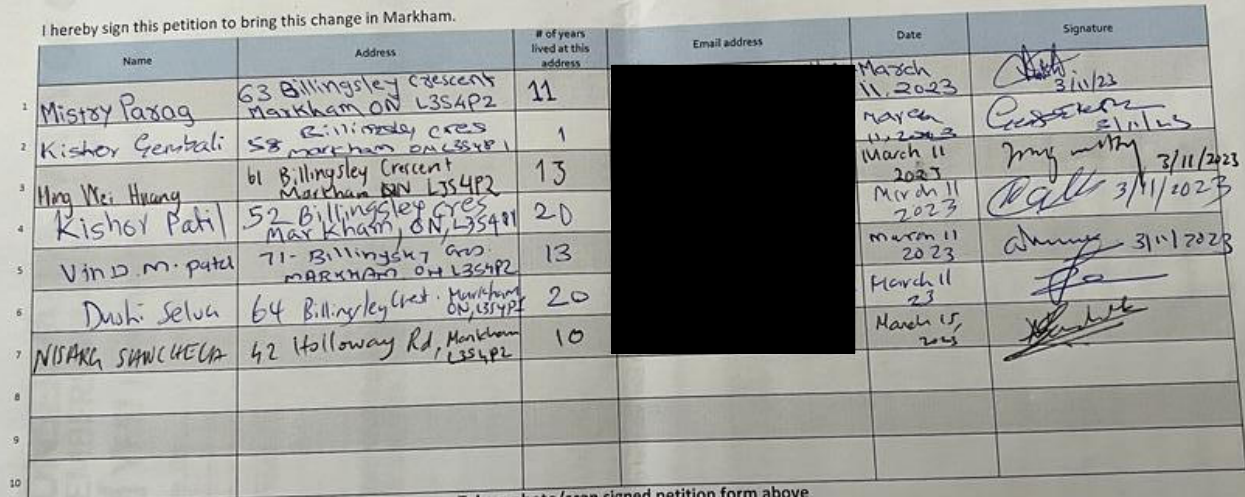 I hereby sign this petition to bring this change in Markham.
Name Address # of years lived at this address Email address Date Signature
1 Mistry Parag 63 Billingsley Crescent Markham ON L3S4P2 11 March 11, 2023 3/11/23
2 Kishor Gembali 58 Billingsley cres markham ON 1 March 11, 2023
3 Hing Wei Huang 61 Billingsley Crescent Markham ON L3S4P2 13 March 11 2023 3/11/2023
4 Kishor Patil 52 Billingsley cres Markham, ON, 20 March 11 2023 3/11/2023
5 Vin D. M. patel 71- Billingsley MARKHAM ON L3S4P2 13 March 11 2023 3/11/2023
6 Dushi Selva 64 Billingsley Cres. Markham ON, L3S4P2 20 March 11 23
7 NISARG 42 Holloway Rd, Markham L3S4P2 10 March 15, 2023
8
9
10
signed petition form above